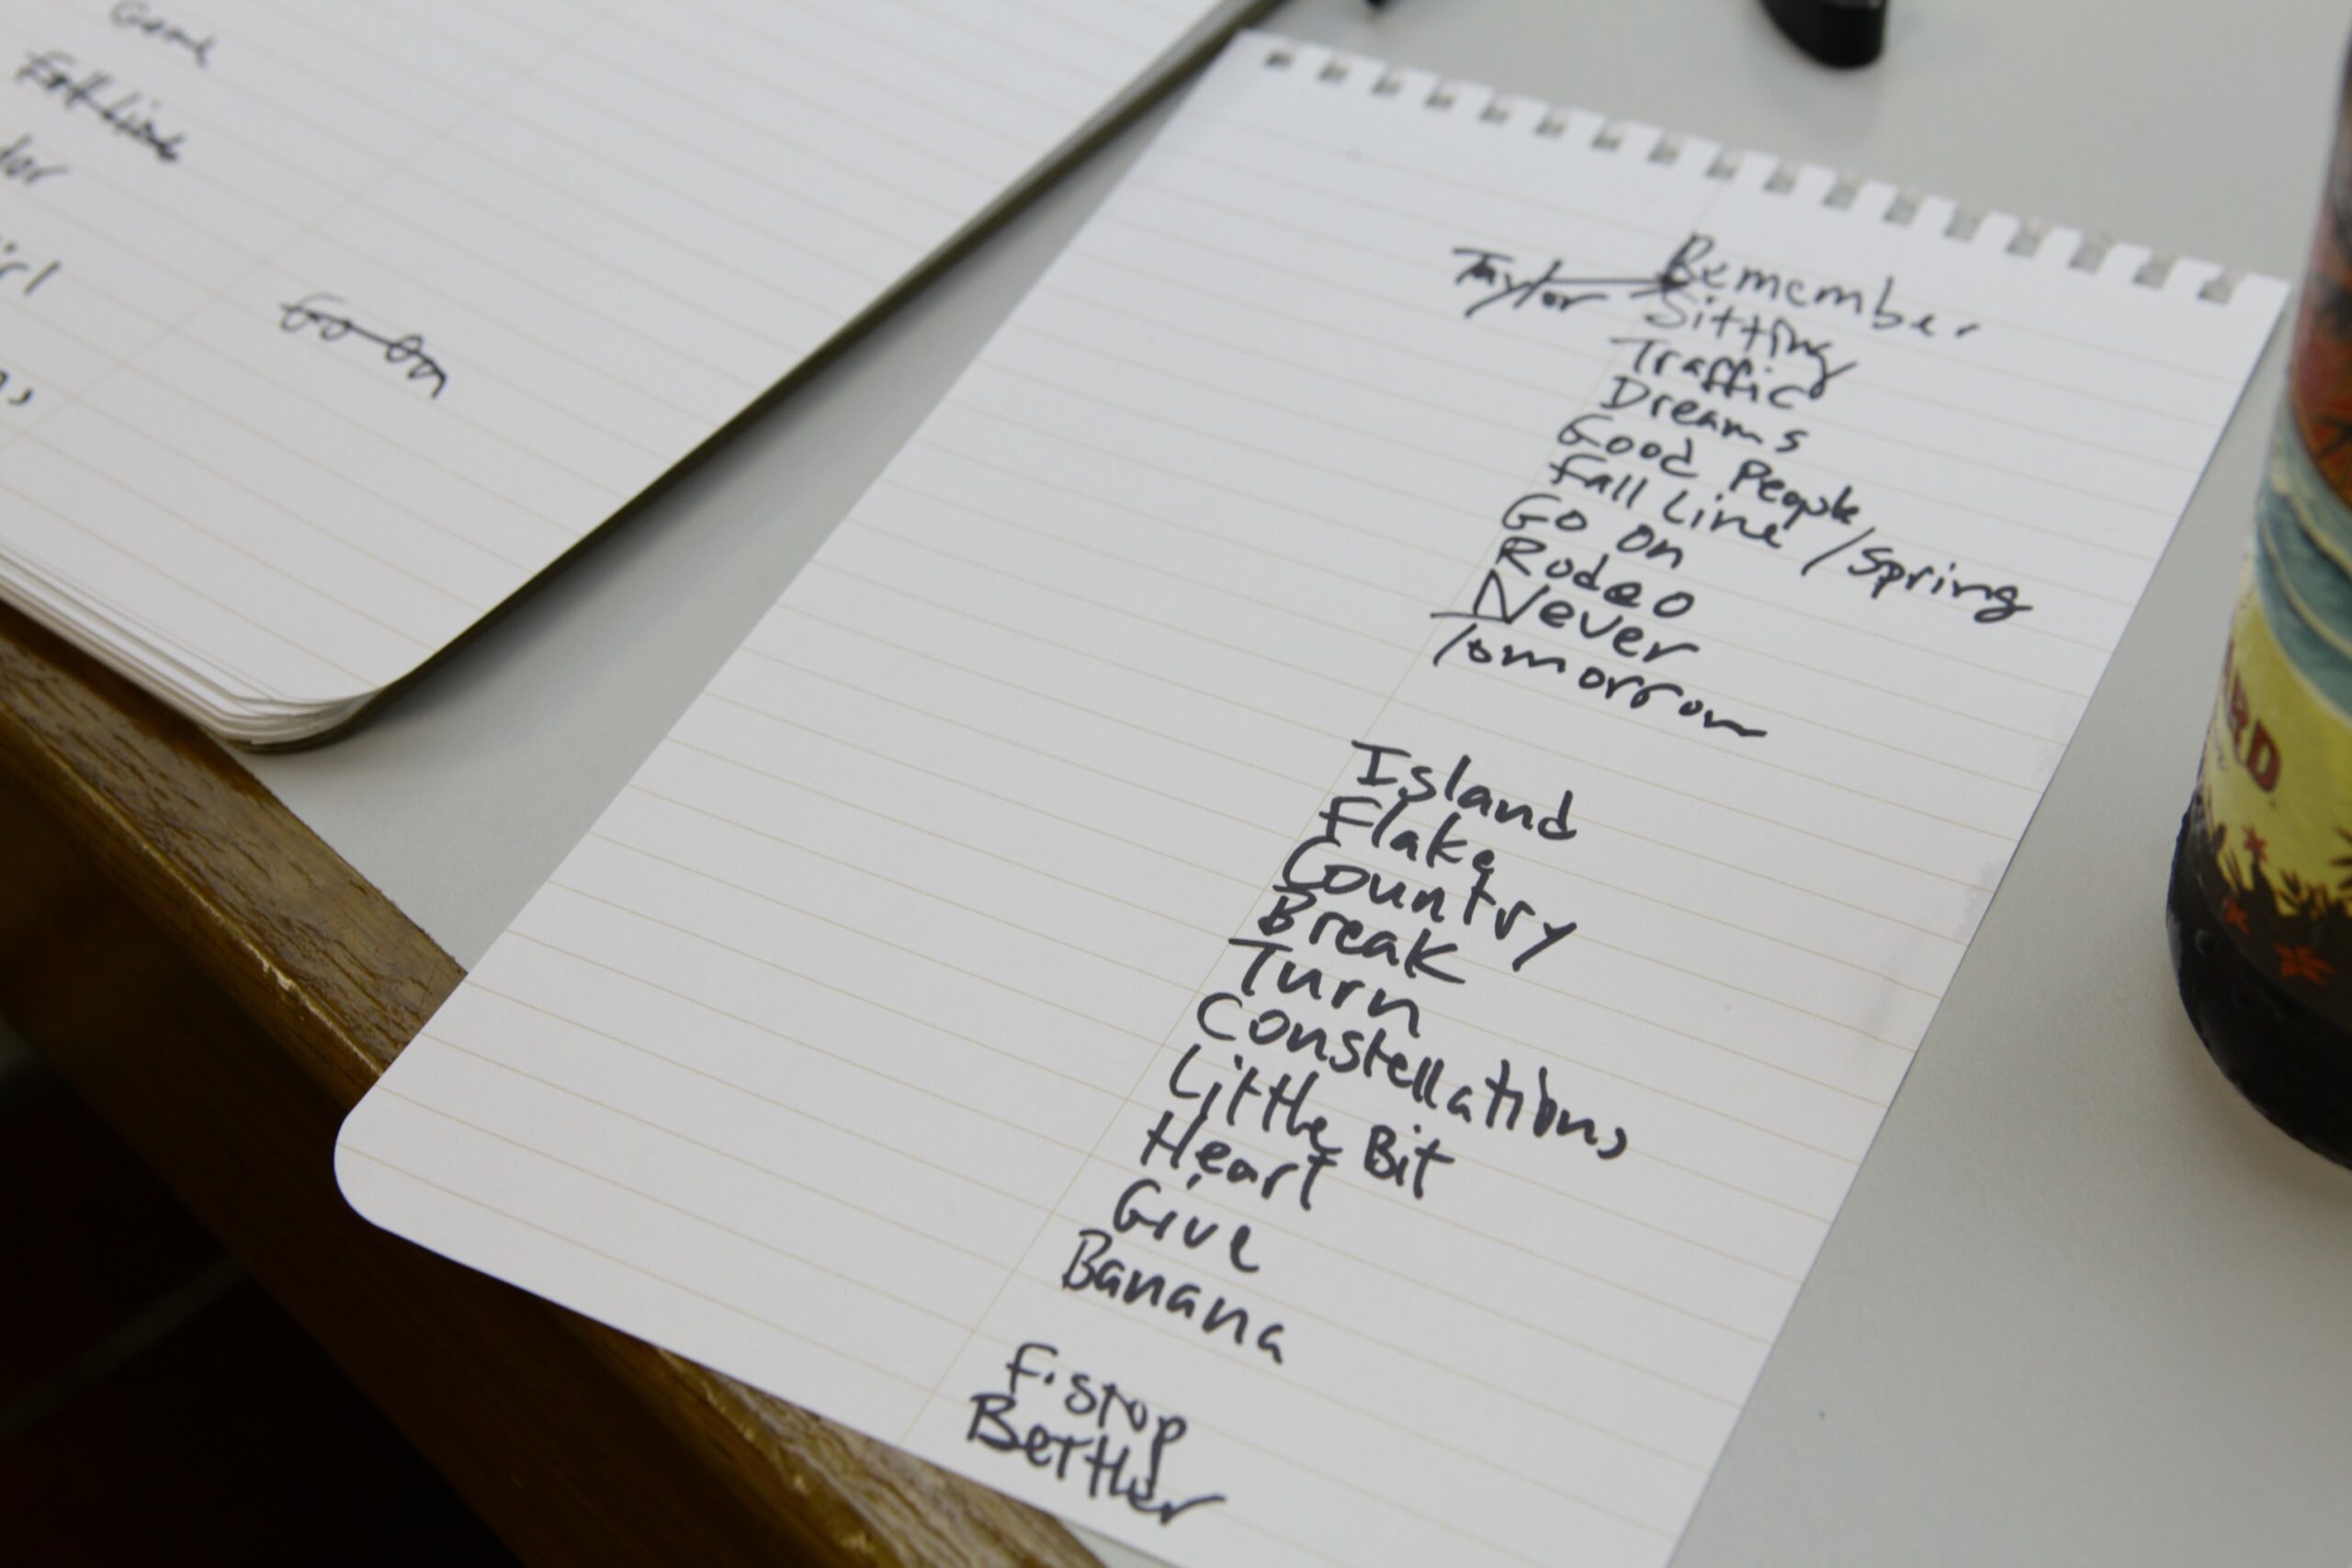 Game
Fall Line
Go On
Remember
Taylor
Sitting
Traffic
Dreams
Good People
Fall Line / Spring
Go on
Rodeo
Never
Tomorrow
Island
Flake
Country
Break
Turn
Constellations
Little Bit
Heart
Give
Banana
F. Stop
Bertter
RD